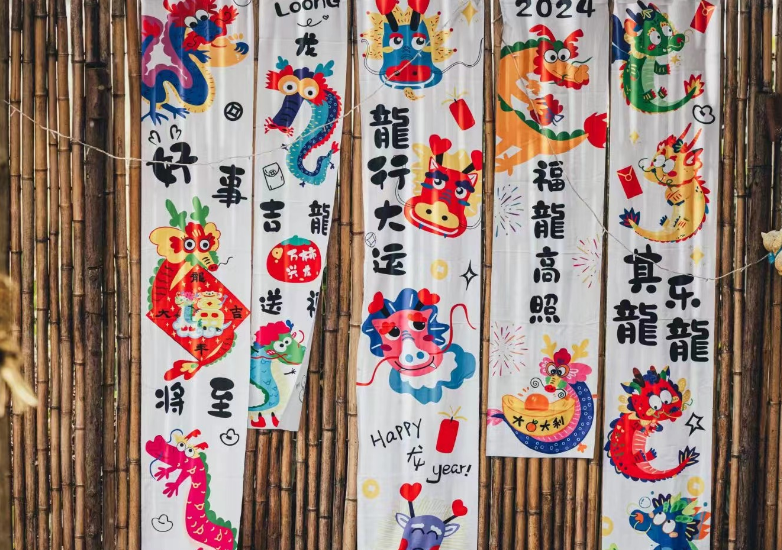 好事
龍
大吉
年
将至
Loong
龙
吉龍
送福
龍行大运
Happy
龙 year!
2024
福龍高照
大吉大利
其乐
龍龍